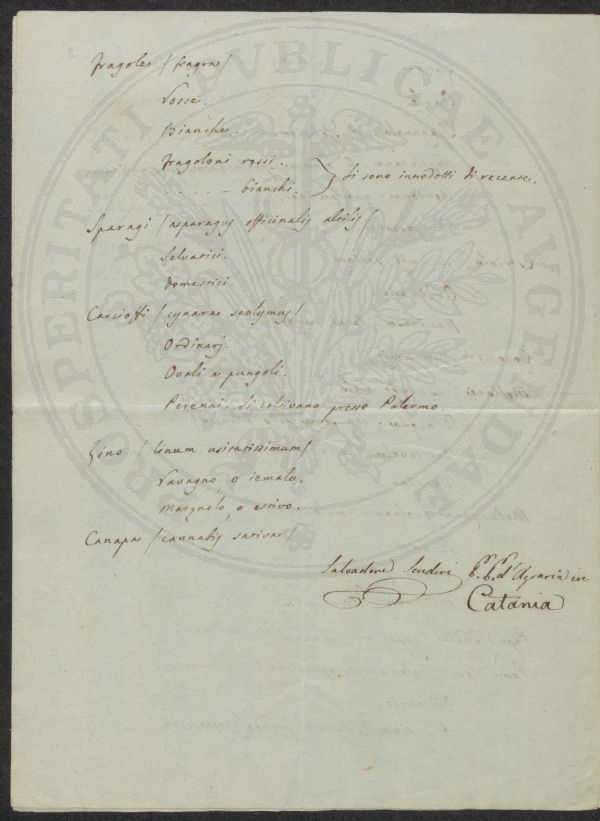 Fragole / fragra /
Rosse.
Bianche.
Fragoloni rossi.
bianchi. } Si sono introdotti di recente.
Sparagi / asparagus officinalis altilis /
Selvatici.
Domestici.
Carcioffi / cynara scolymus /
Ordinarj.
Ovali a pungoli.
Perenni. Si coltivano presso Palermo.
Lino / linum usitatissimum /
Vavagno, o iemale.
Marzuolo, o estivo.
Canapa / cannabis sativa /
Salvadore Scuderi P. P. d'Agraria in
Catania
PROSPERITATI PVBLICAE AVGENDAE